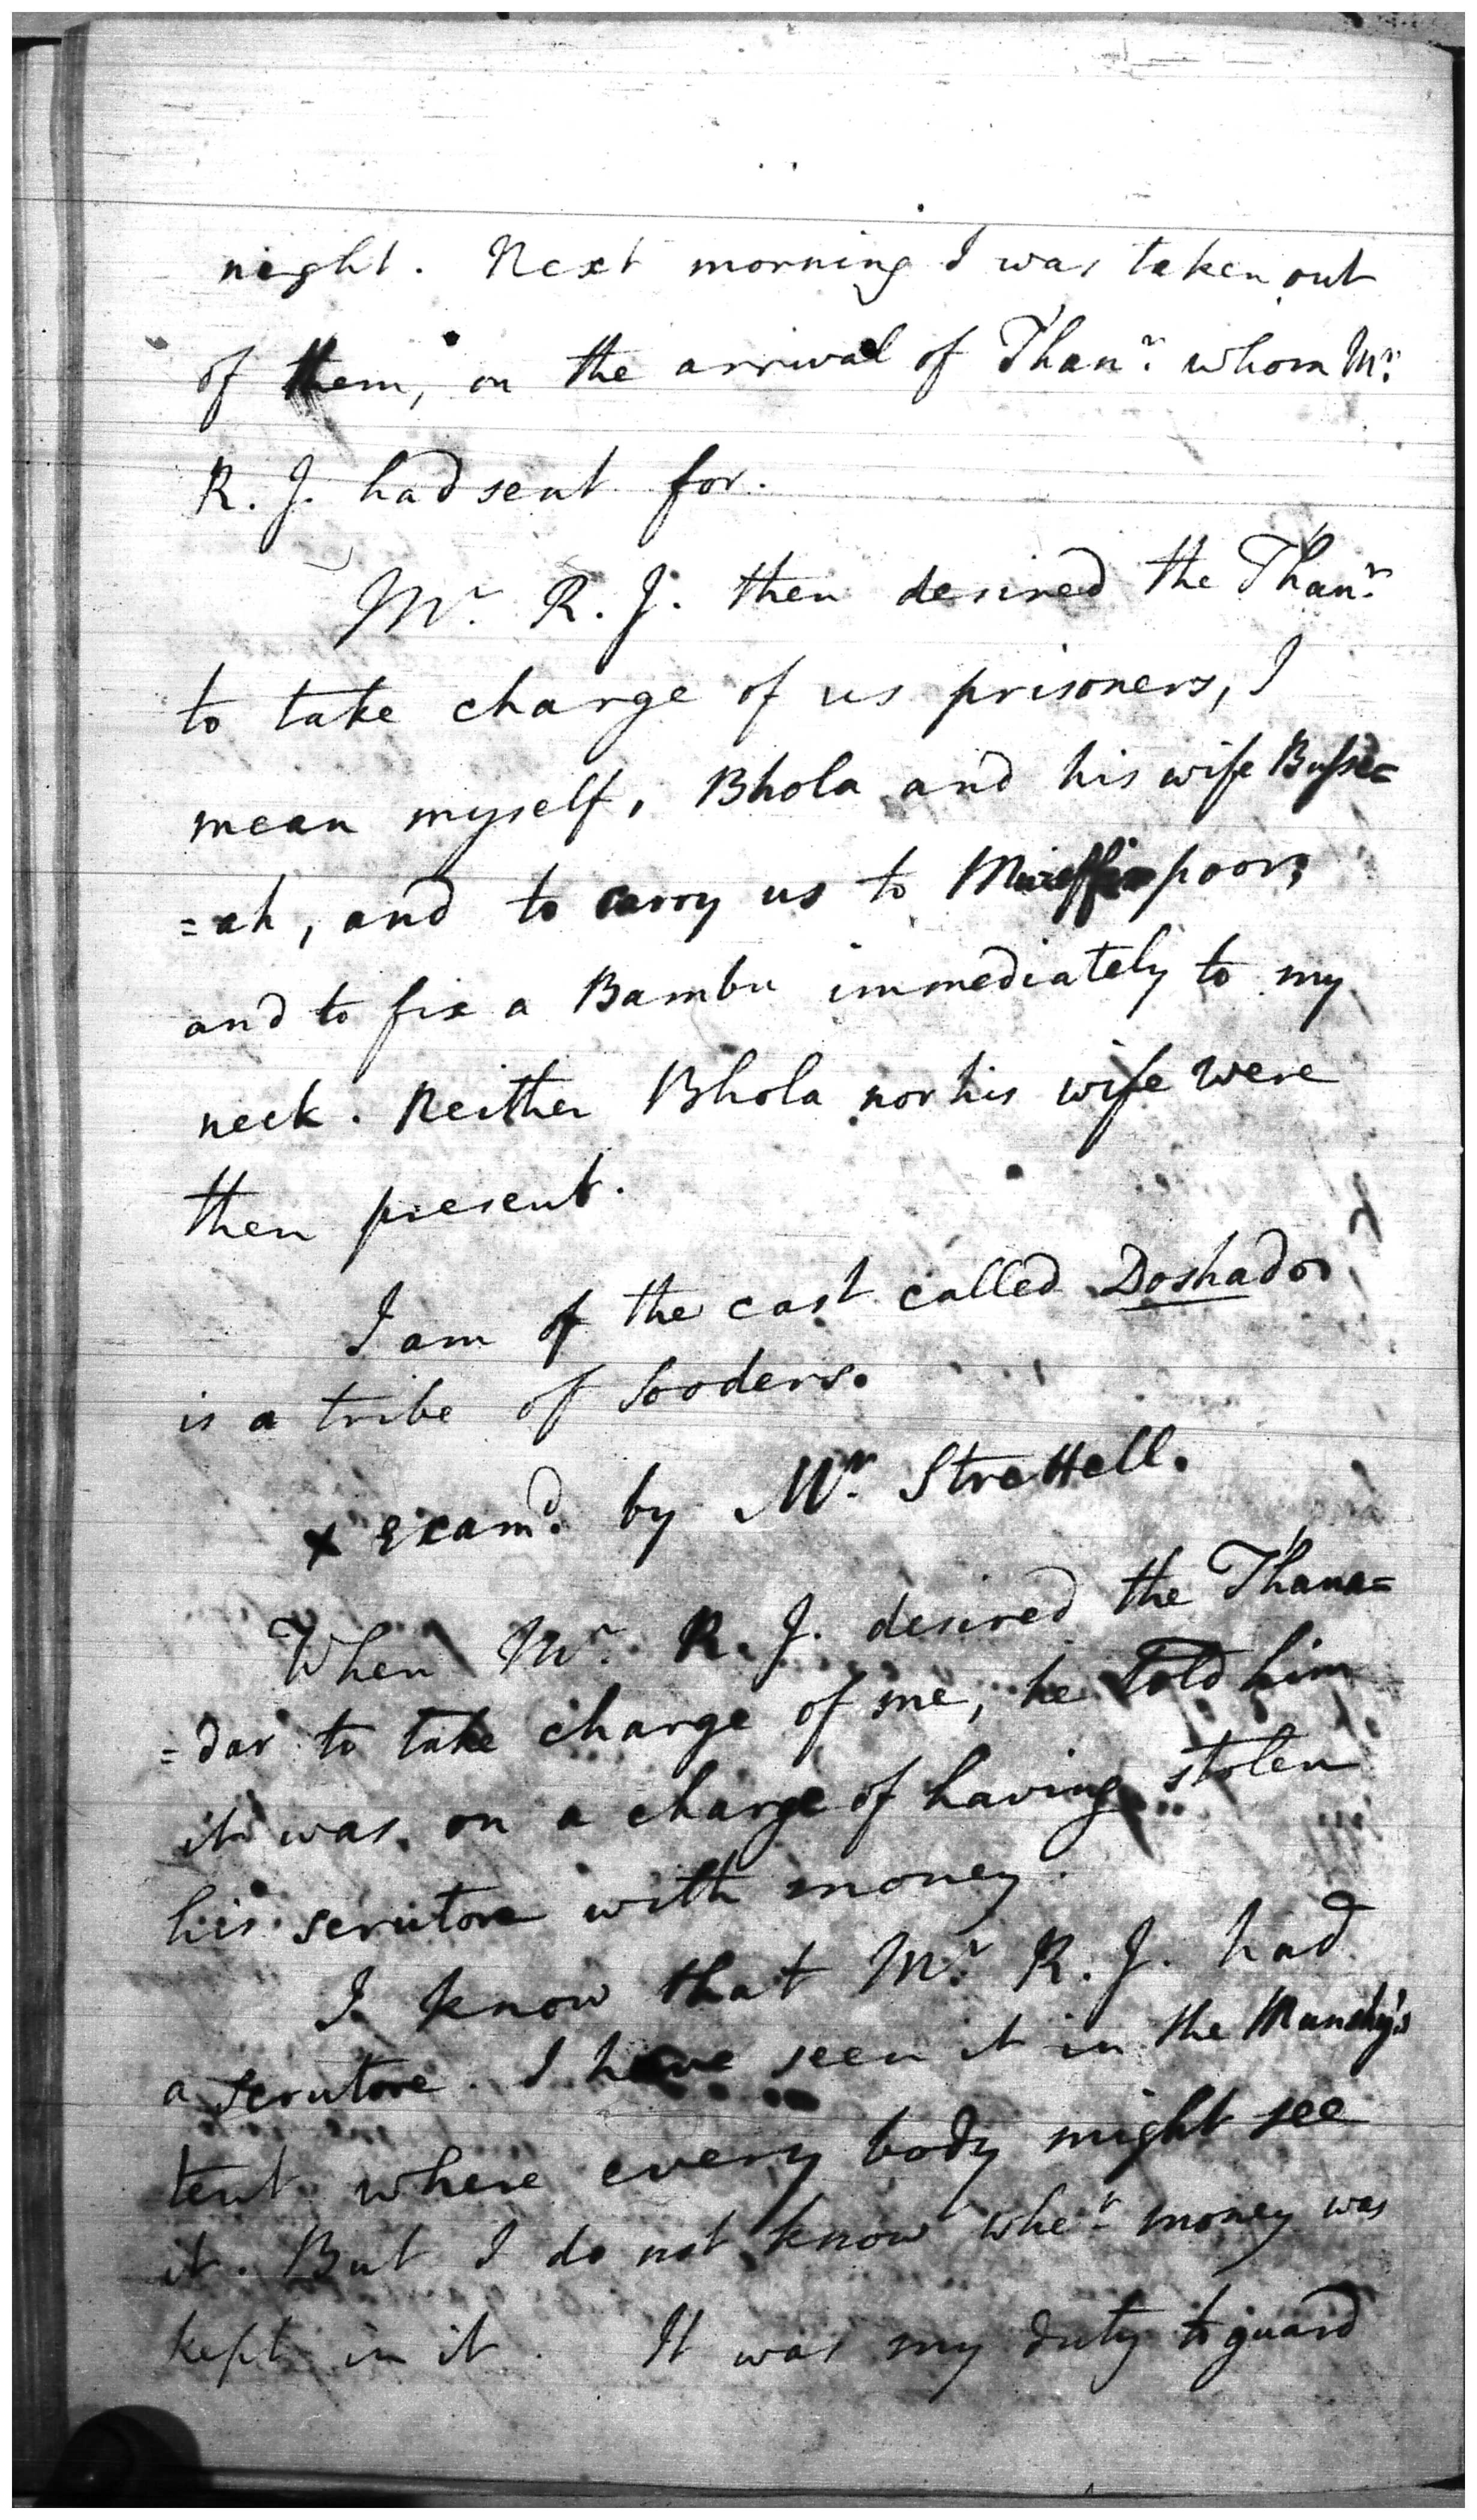 night. Next morning I was taken out
of them, on the arrival of Thanr. whom Mr.
R. J. had sent for.
Mr. R. J. then desired the Thanr.
to take charge of us prisoners, I
mean myself, Bhola and his wife Busse=
=ah, and to carry us to poor,
and to fix a Bambu immediately to my
neck. Neither Bhola nor his wife were
then present.
I am of the cast called Doshado
is a tribe of Sooders.
x Examd. by Mr. Strettell.
When Mr. R. J. desired the Thana=
=dar to take charge of me, he told him
it was on a charge of having stolen
his scrutore with money.
I know that Mr. R. J. had
a scrutore. I have seen it in the Munshy's
tent where every body might see
it. But I do not know wher. money was
kept in it. It was my duty to guard